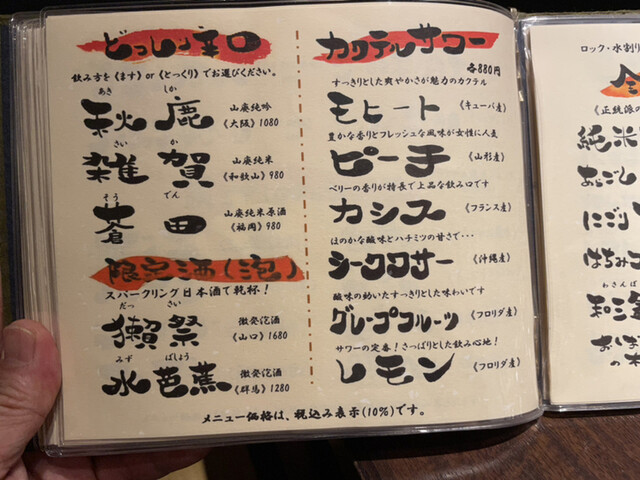 どっしり辛口
飲み方を《ます》or《とっくり》でお選びください。
あき しか
秋鹿 山廃純吟
《大阪》1080
さい か
雑賀 山廃純米
《和歌山》980
そう でん
蒼田 山廃純米原酒
《福岡》980
限定酒(泡)
スパークリング日本酒で乾杯!
だっ さい
獺祭 微発泡酒
《山口》1680
みず ばしょう
水芭蕉 微発泡酒
《群馬》1280
カクテルサワー
各880円
すっきりとした爽やかさが魅力のカクテル
モヒート 《キューバ産》
豊かな香りとフレッシュな風味が女性に人気
ピーチ 《山形産》
ベリーの香りが特長で上品な飲み口です
カシス 《フランス産》
ほのかな酸味とハチミツの甘さで・・・
シークワサー 《沖縄産》
酸味の効いたすっきりとした味わいです
グレープフルーツ 《フロリダ産》
サワーの定番!さっぱりとした飲み心地!
レモン 《フロリダ産》
メニュー価格は、税込み表示(10%)です。
ロック・水割り
《正統派の
純米
あらごし
にごり
はちみつ
わさんぼ
和三盆